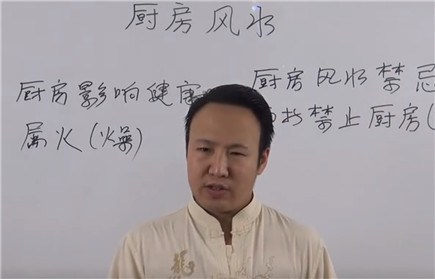 厨房风水
厨房影响健康
属火(燥)
厨房风水禁忌
禁止厨房(